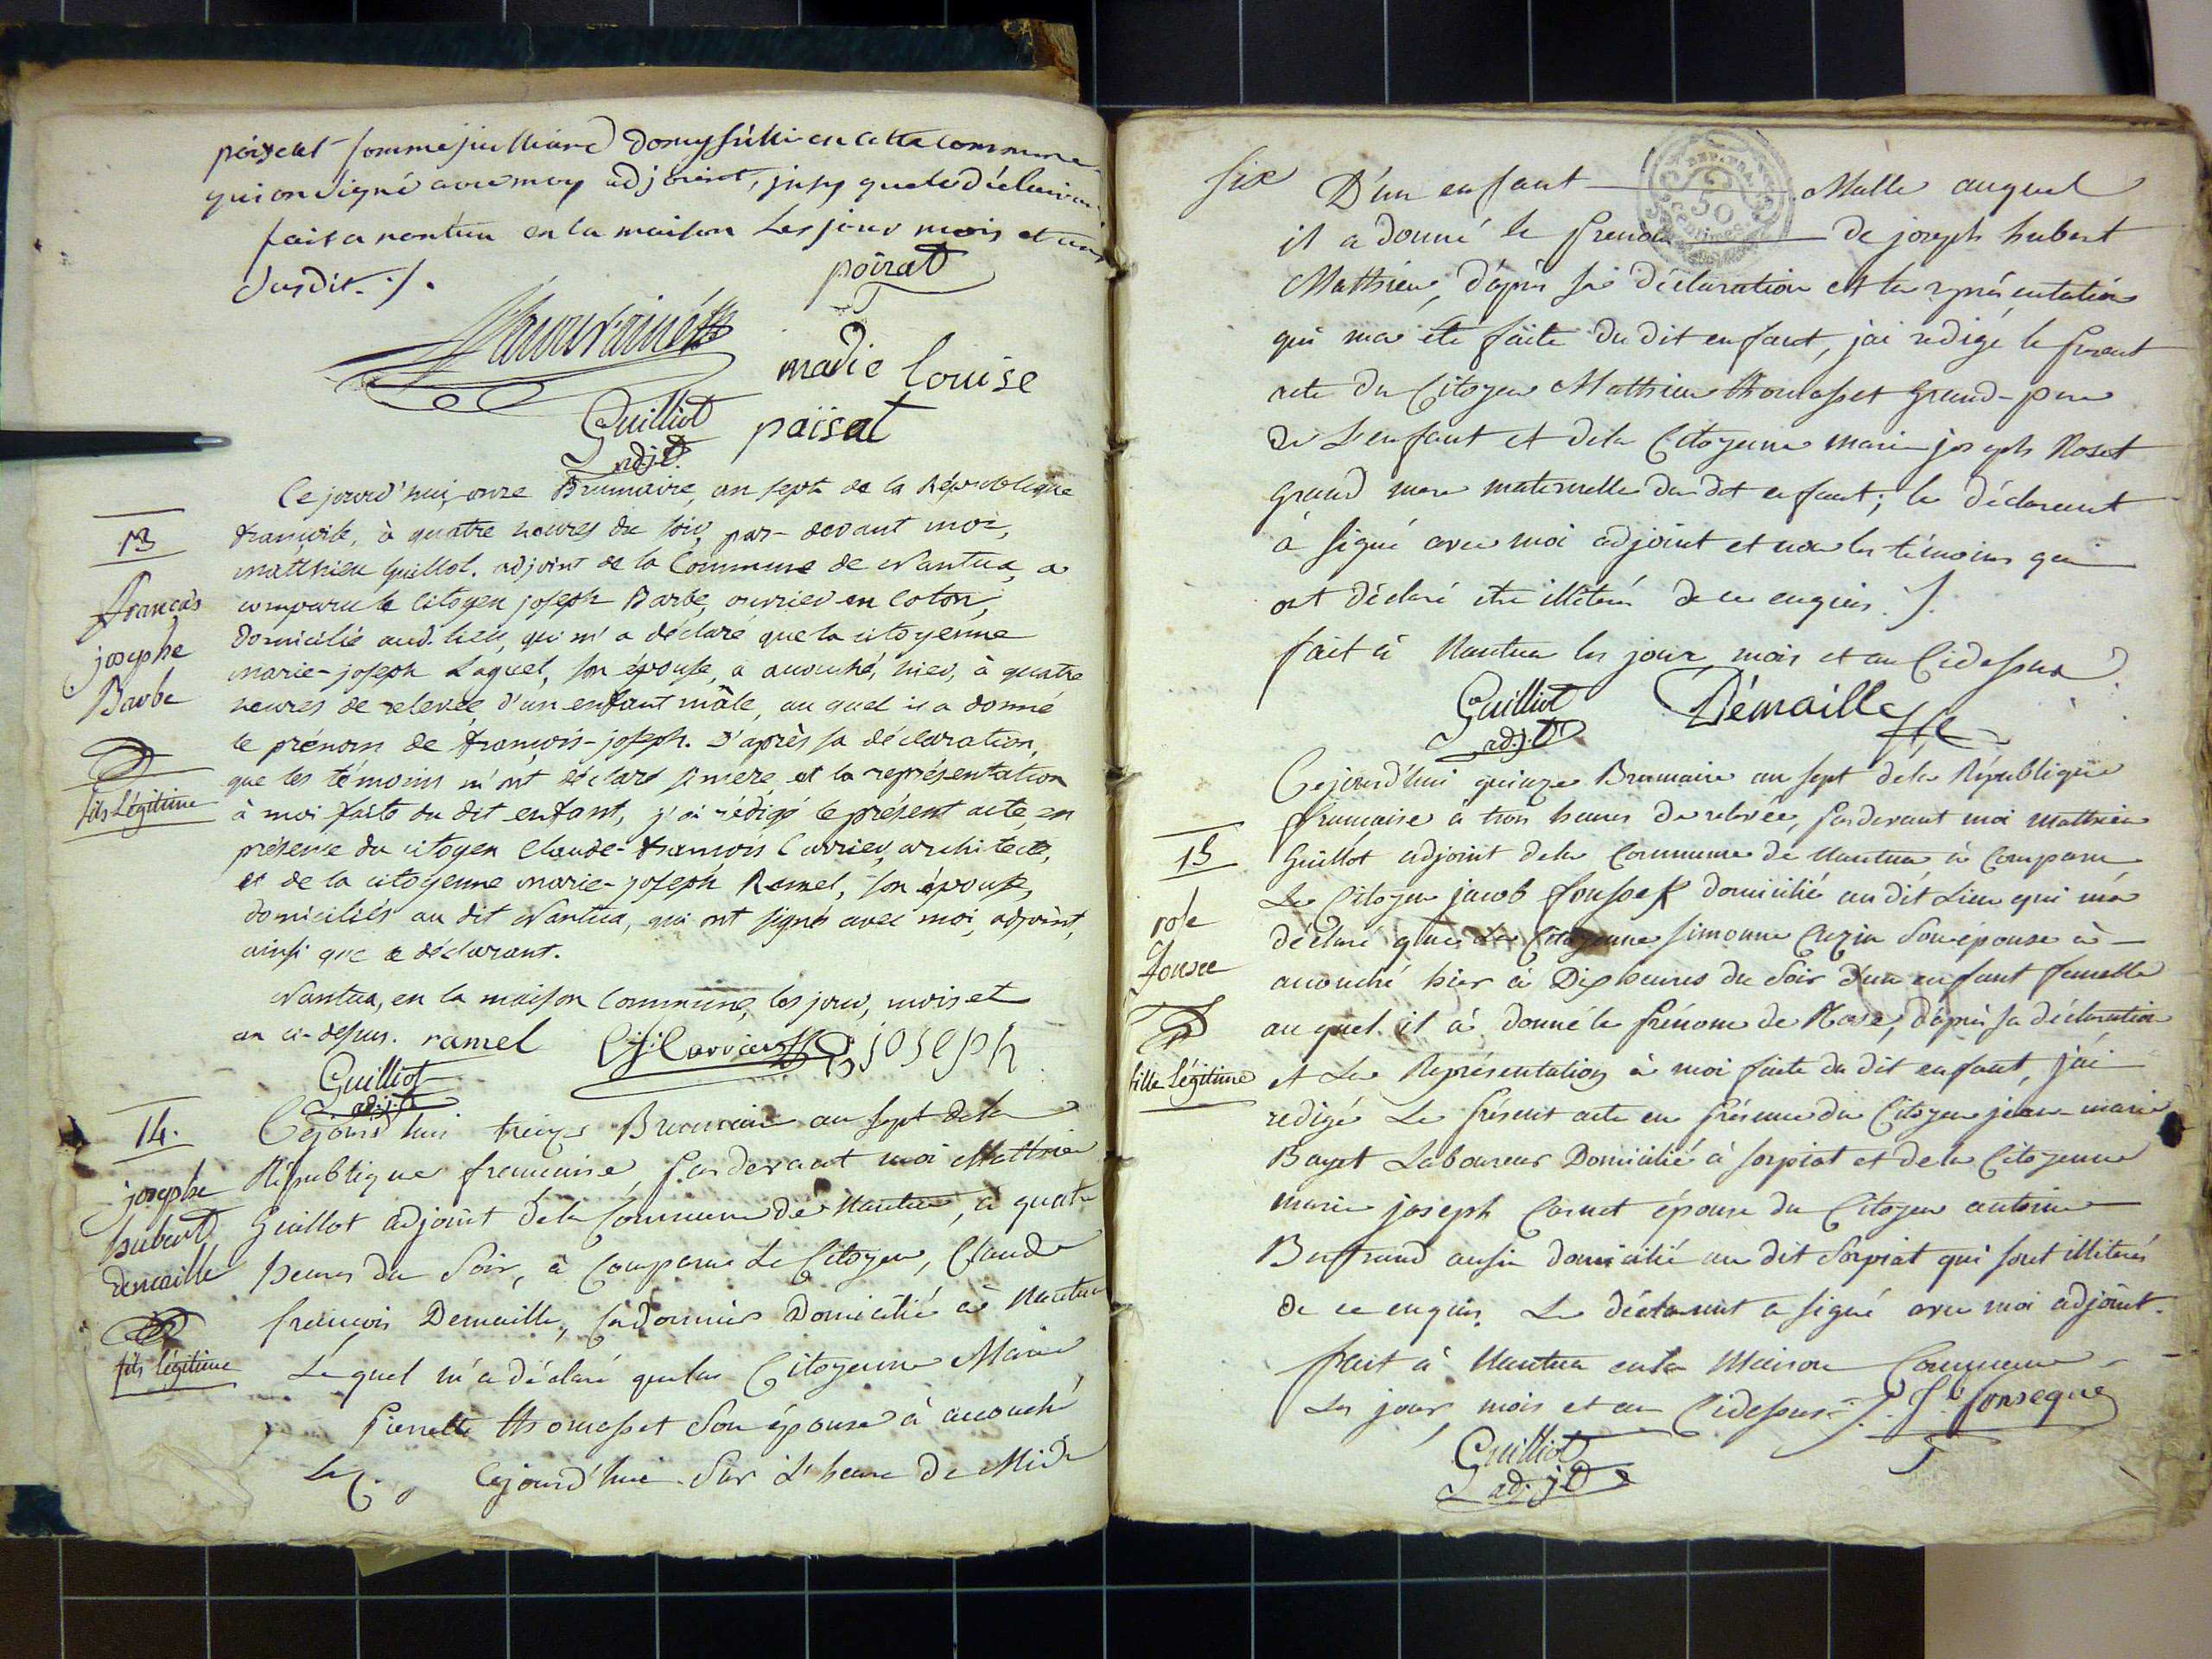 qui on signé avec moy adjoint, 
fait a nantua en la maison les jour mois et an
susdit ./.
poirat
marie louise
Guilliot païsat
adjt.
13
françois
josephe
Barbe
fils Légitime
Ce jourd'hui, onze Brumaire, an sept de la République
française, à quatre heures du soir, par-devant moi,
matthieu Guillot, adjoint de la Commune de Nantua, a
comparu le citoyen joseph Barbe, ouvrier en coton,
domicilié aud. lieu, qui m'a déclaré que la citoyenne
marie-joseph Laguet, son épouse, a accouché, hier, à quatre
heures de relevée d'un enfant mâle, au quel il a donné
le prénom de françois-joseph. D'après sa déclaration,
que les témoins m'ont déclaré sincère et la représentation
à moi faite du dit enfant, j'ai rédigé le présent acte, en
présence du citoyen Claude-françois Carrier, architecte,
et de la citoyenne marie-joseph Ramel, son épouse,
domiciliés au dit Nantua, qui ont signé avec moi, adjoint,
ainsi que le déclarant.
Nantua, en la maison Commune, les jour, mois et
an ci-dessus. ramel Carrier B joseph
Guilliot
adjt
14.
josephe
hubert
demaille
fils légitime
Cejourd'hui treize Brumaire an sept de la
République francaise, pardevant moi Matthieu
Guillot adjoint dela Commune de Nantua, à quatre
heures du Soir, à Comparu Le Citoyen, Claude
francois Demaille, Cadonnier Domicilié à Nantua
Lequel m'a déclaré que la Citoyenne Marie
Pierrette thomasset Son épouse à accouché
Cejourd'hui Sur L'heure de Midi
six
D'un enfant Malle auquel
il a donné le prenom de joseph hubert
Matthieu, d'après sa déclaration et la représentation
qui ma été faite du dit enfant, jai redigé le présent
acte du Citoyen Mathieu thomasset Grand-pere
de L'enfant et dela Citoyenne marie joseph Roset
grand mere maternelle du dit enfant; le déclarant
à signé avec moi adjoint et non les témoins qui
ont déclaré être illiterés de ce enquis ./.
fait à Nantua les jour, mois et an Cidessus
Guilliot Démaille
adjt
15
rose
fonsec
fille Légitime
Cejourd'hui quinze Brumaire an sept dela République
francaise à trois heures de relevée, pardevant moi Matthieu
Guillot adjoint dela Commune de Nantua à Comparu
Le Citoyen jacob domicilié au dit Lieu qui m'a
déclaré que La Citoyenne Simonne Cuzin Son épouse à
accouché hier à Dix heures du Soir d'un enfant femelle
au quel il à donné le Prénom de Rose, d'après sa déclaration
et La Représentation à moi faite du dit enfant, j'ai
redigé Le présent acte en présence du Citoyen jean-marie
Bayet Laboureur Domicilié à sorpiat et dela Citoyenne
marie joseph Carnet épouse du Citoyen antoine
Bertrand aussi domicilié au dit Sorpiat qui sont illiterés
de ce enquis. Le déclarant a signé avec moi adjoint.
fait à Nantua en la Maison Commune
Les jour, mois et an Cidessus ./. fonseque
Guilliot
adjt
50